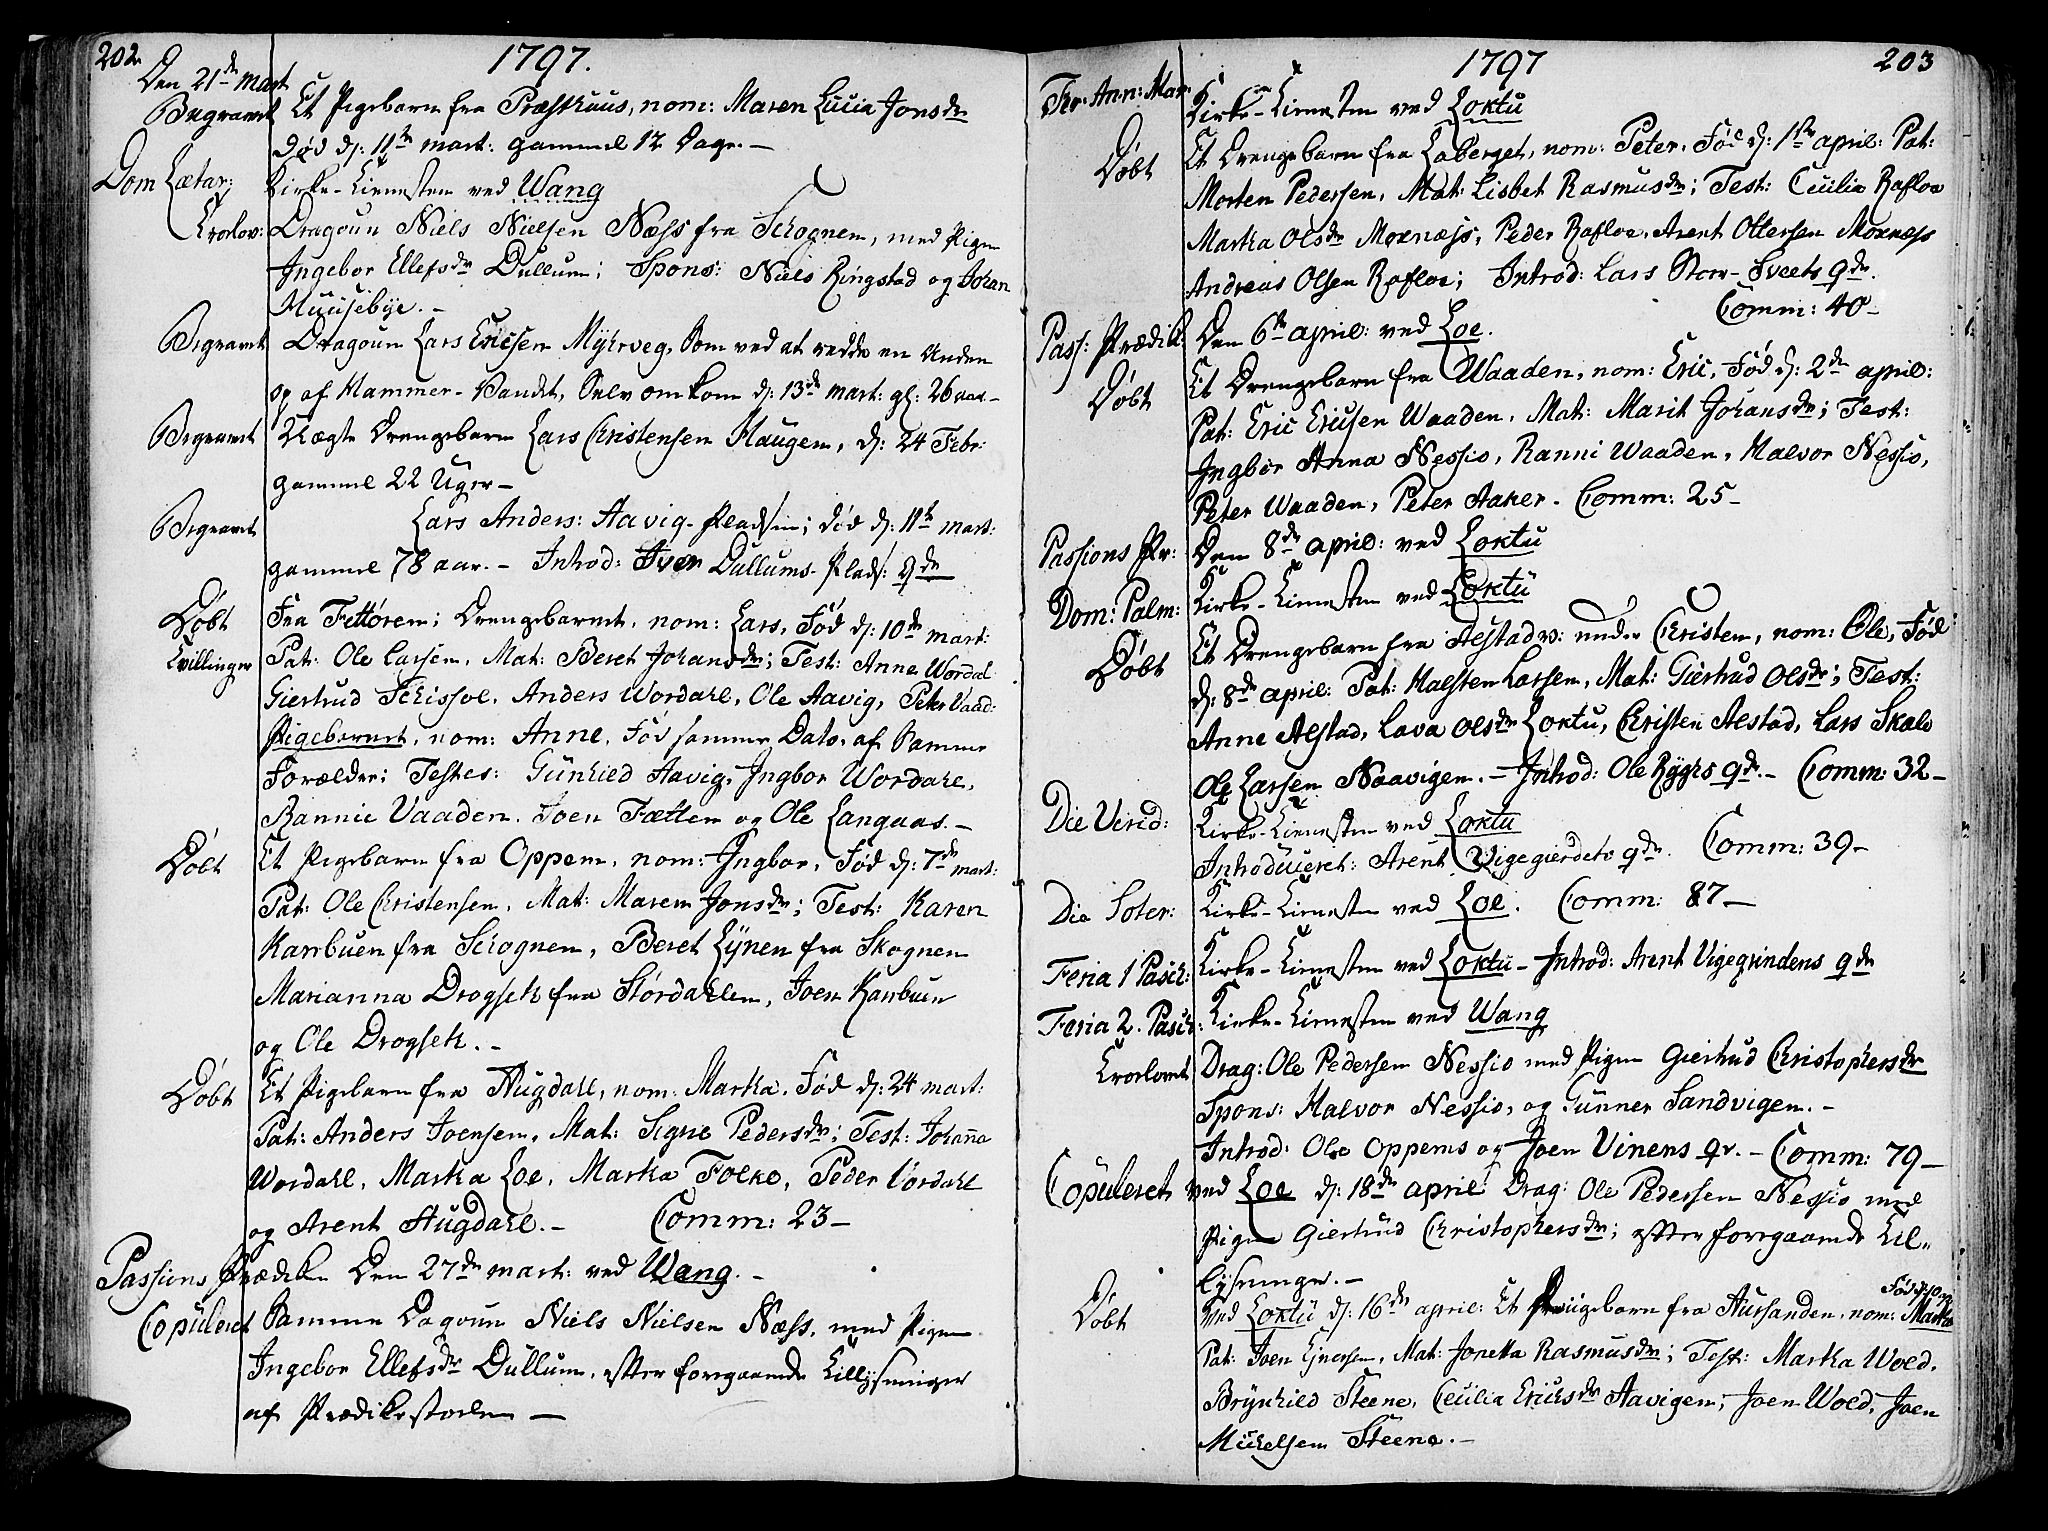 202
1797.
Den 21de Mart
Begravet Et Pigebarn fra Præsthuus, nom: Maren Lucia Jonsdr
død d: 11te mart: gammel 12 Dage. –
Dom Lætar: Kirke-Tienesten ved Wang
Trolov: Dragoun Niels Nielsen Næss fra Schognen, med Pigen
Ingebor Ellefsdr Dullum; Spons: Niels Ringstad og Johan
Huusebye. –
Begravet Dragoun Lars Ericsen Myhrveg, som ved at redde en Anden
op af Hammer-Vandet, selv omkom d: 13de mart: gl: 26 aar –
Begravet Uægte Drengebarn Lars Christensen Haugen, d: 24 Febr:
gammel 22 Uger –
Begravet Lars Anders: Aavig-Pladsen; død d: 11te mart:
gammel 78 aar. – Introd: Iver Dullums-Plads: qde
Døbt Fra Fettøren; Drengebarnet, nom: Lars, Fød d: 10de mart:
Tvillinger Pat: Ole Larsen, Mat: Beret Johansdr; Test: Anne Wordal
Giertrud Schissol, Anders Wordahl, Ole Aavig, Peter Vaad:
Pigebarnet, nom: Anne, Fød samme Dato, af samme
Forældre; Testes: Gunhild Aavig, Ingbor Wordahl,
Rannie Vaaden, Joen Fætten og Ole Langaas. –
Døbt Et Pigebarn fra Oppem, nom: Ingbor, Fød d: 7de mart:
Pat: Ole Christensen, Mat: Maren Jonsdr; Test: Karen
Karrbuen fra Schognen, Beret Lynen fra Skognen
Marianna Drogseth fra Størdahlen, Joen Karrbuen
og Ole Drogseth. –
Døbt Et Pigebarn fra Augdahl, nom: Martha, Fød d: 24 mart:
Pat: Anders Joensen, Mat: Signe Pedersdr; Test: Johanna
Wordahl, Martha Loe, Martha Folko, Peder Vordahl
og Arent Augdahl. – Comm: 23 –
Passions Prædiken Den 27de mart: ved Wang. –
Copuleret Samme Dagoun Niels Nielsen Næss, med Pigen
Ingebor Ellefsdr Dullum, efter foregaaende Tillysninger
af Prædikestolen –
1797
203
Fer: Ann: Mar: Kirke-Tienesten ved Loktu
Døbt Et Drengebarn fra Laberget, nom: Peter, Fød d: 1ste april: Pat:
Morten Pedersen, Mat: Lisbet Rasmusdr; Test: Cecilia Rafloe
Martha Olsdr Moxness, Peder Rafloe, Arent Ottersen Moxness
Andreas Olsen Rafloe; Introd: Lars Stor-Tveets qde.
Comm: 40 –
Pass: Prædik: Den 6te april: ved Loe.
Døbt Et Drengebarn fra Waaden, nom: Eric, Fød d: 2de april:
Pat: Eric Ericsen Waaden, Mat: Marit Johansdr; Test:
Ingbor Anna Nessio, Ranni Waaden, Halvor Nessio,
Peter Waaden, Peter Aaker. Comm: 25 –
Passions Pr: Den 8de april: ved Loktu
Dom: Palm: Kirke-Tienesten ved Loktu
Døbt Et Drengebarn fra Alstad v: under Christen, nom: Ole, Fød
d: 8de april: Pat: Halsten Larsen, Mat: Giertrud Olsdr; Test:
Anne Alstad, Lava Olsdr Loktu, Christen Alstad, Lars Skale
Ole Larsen Naavigen. – Introd: Ole Ryghs qde. – Comm: 32 –
Die Virid: Kirke-Tienesten ved Loktu
Introduceret: Arent Vigegierdets qde. Comm: 39 –
Die Soter: Kirke-Tienesten ved Loe. Comm: 87 –
Feria 1 Pasch: Kirke-Tienesten ved Loktu – Introd: Arent Vigegrindens qde
Feria 2. Pasch: Kirke-Tienesten ved Wang
Trolovet Drag: Ole Pedersen Nessio med Pigen Giertrud Christophersdr
Spons: Halvor Nessio, og Gunner Sandvigen. –
Introd: Ole Oppems og Joen Vinens qr. – Comm: 79 –
Copuleret ved Loe d: 18de april Drag: Ole Pedersen Nessio med
Pigen Giertrud Christophersdr; efter foregaaende Til-
lysninger. –
Døbt Ved Loktu d: 16de april: Et Piigebarn fra Aursanden, nom: Martha
Pat: Joen Ejnersen, Mat: Jonetta Rasmusdr; Test: Martha Wold,
Brynhild Steene, Cecilia Erichsdr Aavigen, Joen Wold, Joen
Michelsen Steene. –